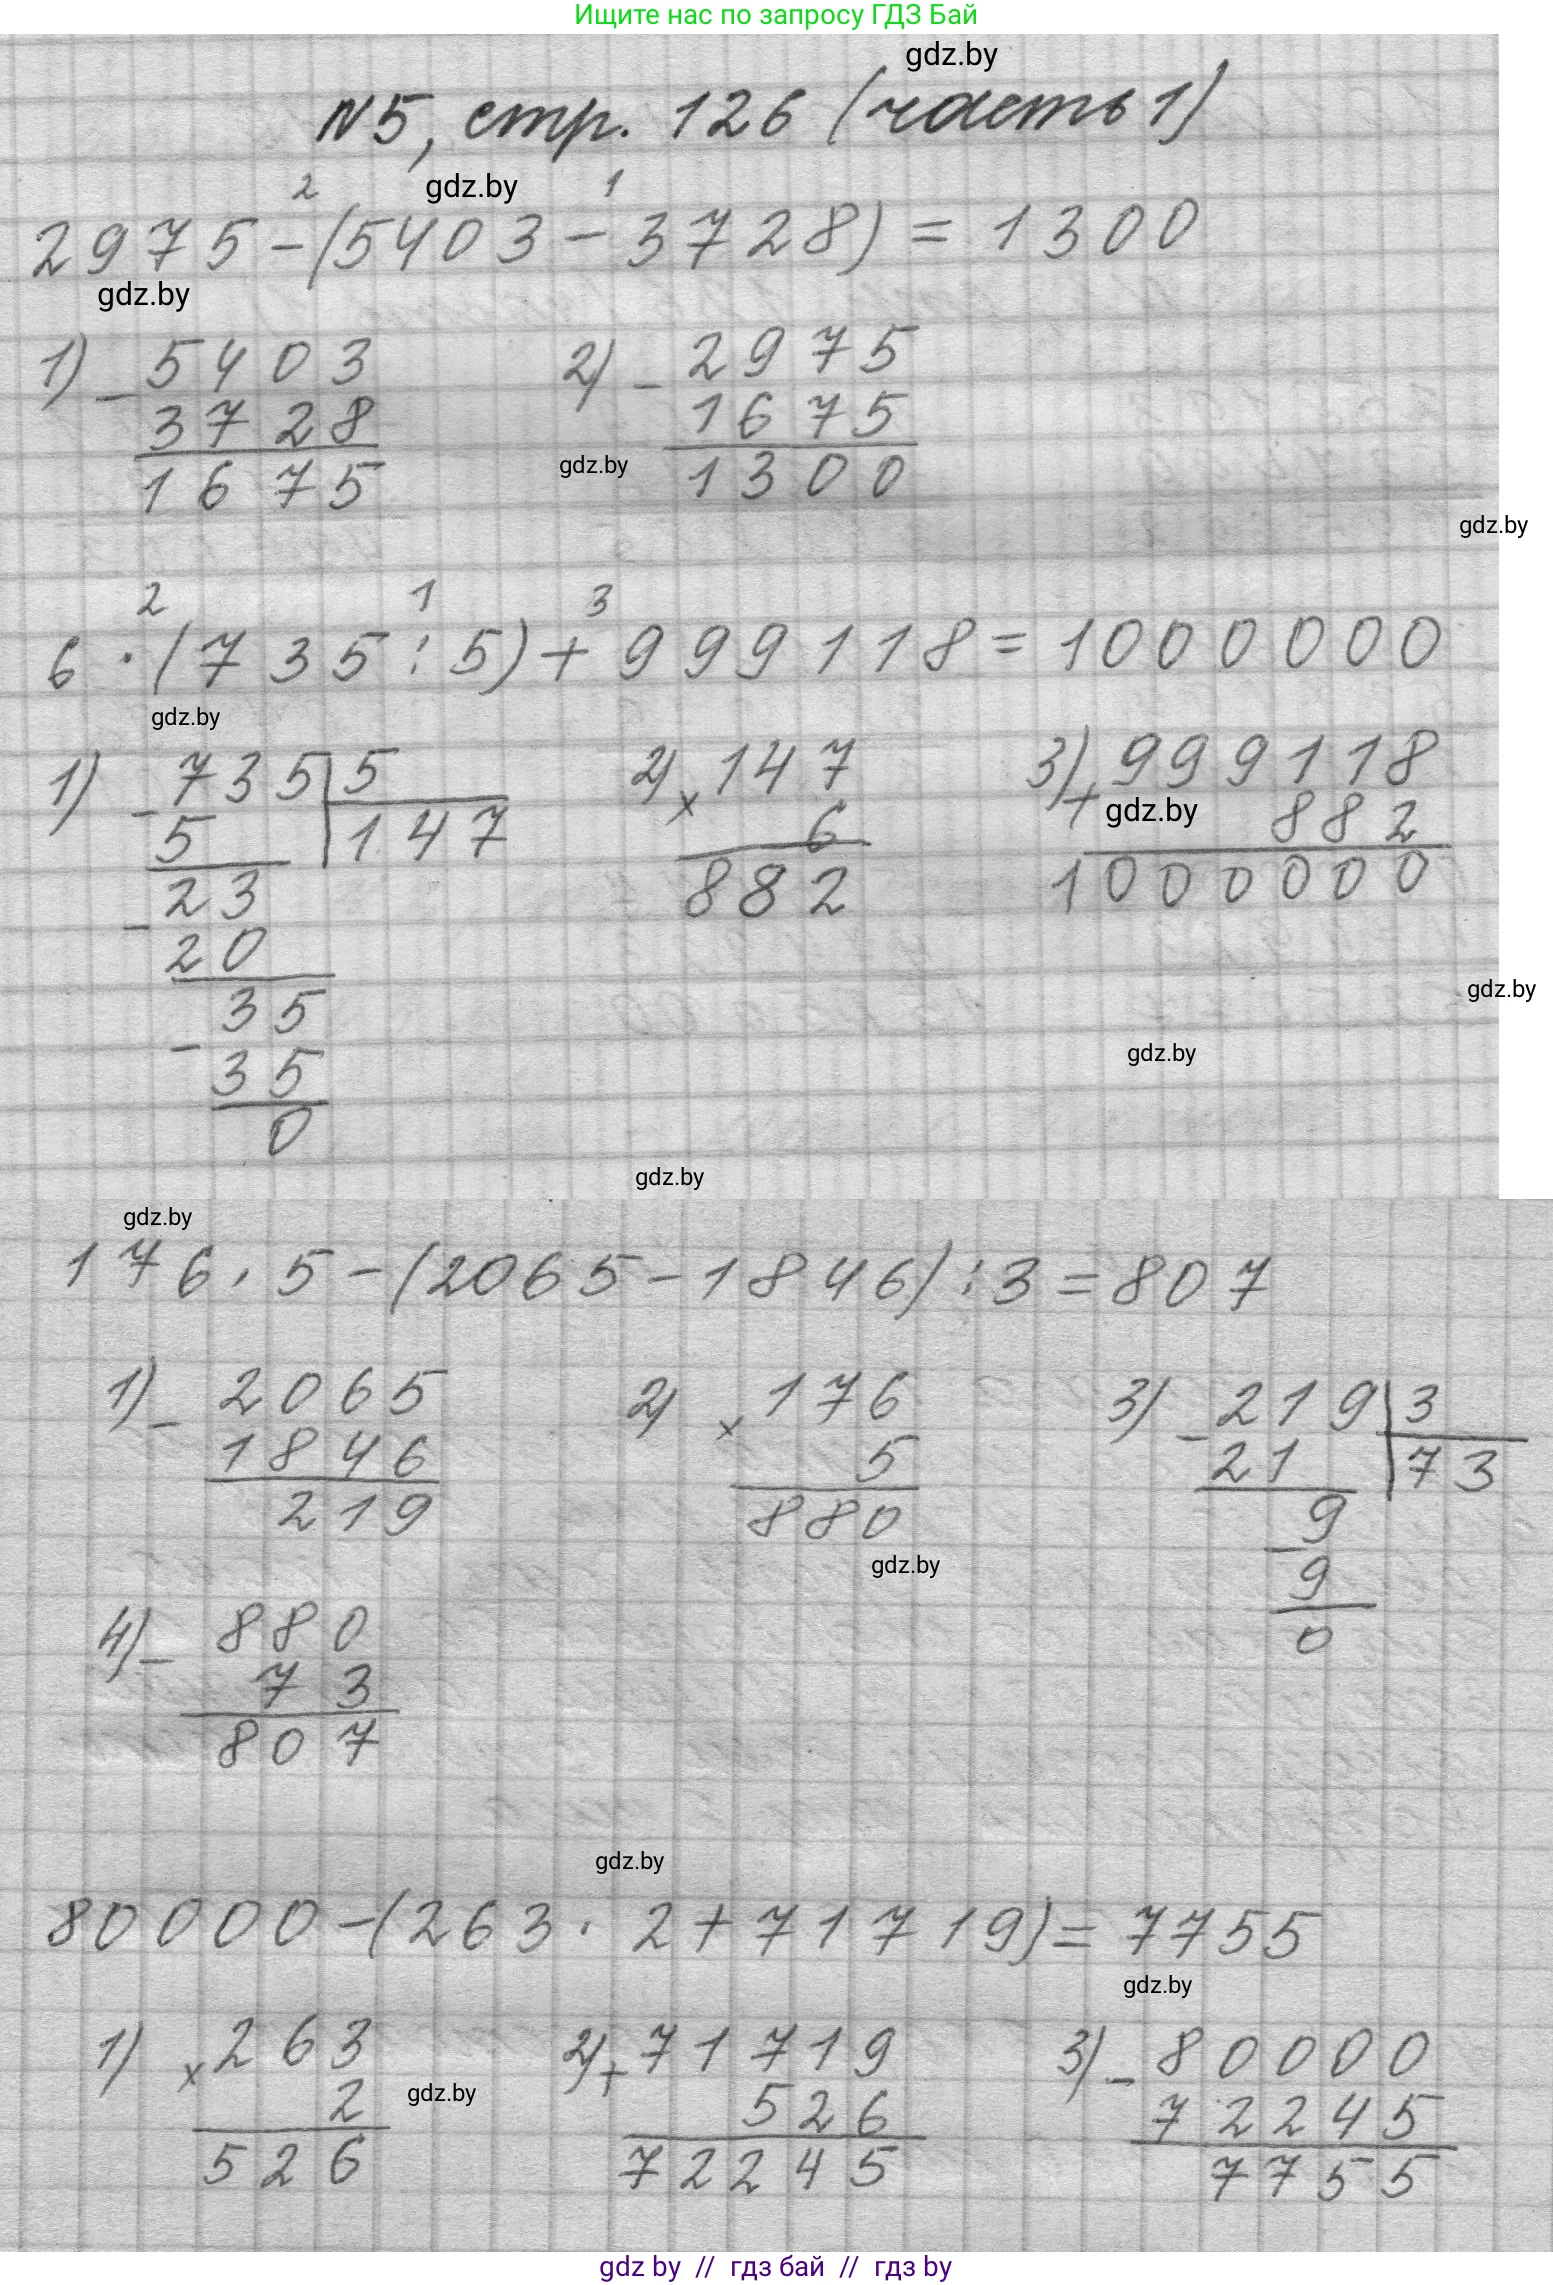 Ищите нас по запросу ГДЗ Бай
gdz.by
№5, стр. 126 (часть 1)
2 gdz.by 1
2975-(5403-3728)=1300
gdz.by
1) - 5403 2) - 2975
3728 1675
1675 gdz.by 1300
gdz.by
2 1 3
6·(735:5)+999118=1000000
gdz.by
1) - 735|5 2) × 147 3) + 999118
5 147 6 gdz.by 882
- 23 882 1000000
20
gdz.by
- 35
gdz.by
35
0
gdz.by
gdz.by
176·5-(2065-1846):3=807
1) - 2065 2) × 176 3) - 219|3
1846 5 21 73
219 880 - 9
gdz.by
9
4) - 880 0
73
807
gdz.by
80000-(263·2+71719)=7755
gdz.by
1) × 263 2) + 71719 3) - 80000
2 gdz.by 526 72245
526 72245 7755
gdz by // гдз бай // гдз by